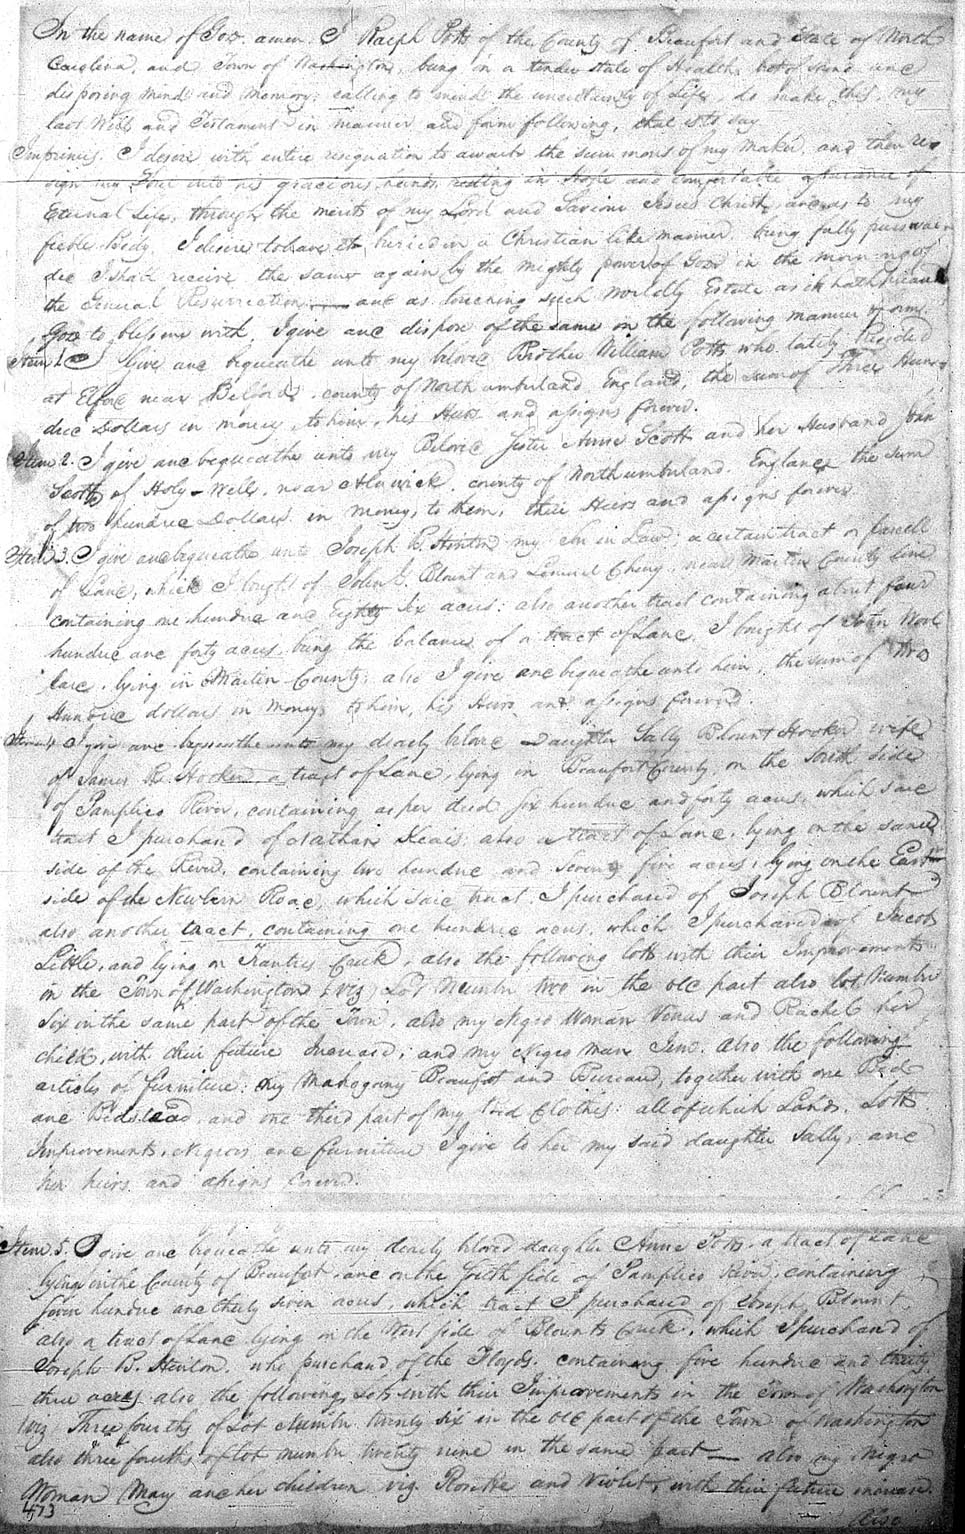 In the name of God. amen. I Ralph Potts of the County of Beaufort and State of North
Carolina, and Town of Washington, being in a tender state of Health, but of sound and
disposing mind and memory; calling to mind the uncertainty of Life, do make this my
last Will and Testament in manner and form following, that is to say.
Imprimis. I desire with entire resignation to await the summons of my Maker, and then re=
sign my Soul into his gracious hands, resting in Hope and comfortable assurance of
Eternal Life, through the merits of my Lord and Saviour Jesus Christ, and as to my
feeble Body, I desire to have it buried in a Christian like manner, being fully
I shall receive the same again by the mighty power of God in the morning of
the General Resurrection — and as touching such Worldly Estate as it hath pleased
God to bless me with, I give and dispose of the same in the following manner & form.
Item 1. I Give and bequeathe unto my beloved Brother William Potts who lately Resided
at Elford near Belford, county of Northumberland, England, the sum of Three Hun=
dred Dollars in money, to him, his Heirs and assigns forever.
Item 2. I give and bequeathe unto my Beloved Sister Anne Scott and her Husband John
Scott of Holy-Well, near Alnwick, county of Northumberland, England, the sum
of two hundred Dollars in money, to them, their Heirs and assigns forever
Item 3. I give and bequeathe unto Joseph B. Hinton my Son in Law, a certain tract or parcell
of Land, which I bought of John G. Blount and Lemuel Cherry, near Martin County line
containing one hundred and Eighty Six acres; also another tract containing about four
hundred and forty acres being the balance of a tract of Land I bought of John
lying in Martin County; also I give and bequeathe unto him, the sum of Two
Hundred dollars in money to him, his Heirs and assigns forever.
Item 4. I give and bequeathe unto my dearly beloved Daughter Sally Blount Hooker wife
of James H. Hooker a tract of Land, lying in Beaufort County, on the South side
of Pamplico River, containing as per deed Six hundred and forty acres, which said
tract I purchased of Nathan Keais; also a tract of Land, lying on the same
side of the River, containing two hundred and seventy five acres, lying on the East
side of the Newbern Road, which said tract I purchased of Joseph Blount
also another tract, containing one hundred acres, which I purchased of Jacob
Little, and lying on Tranters Creek, also the following lotts with their Improvements
in the Town of Washington (viz) Lot Number two in the old part also lot Number
Six in the same part of the Town, also my Negro Woman Venus and Rachel her
child, with their future Increase; and my Negro man Jim. also the following
articles of furniture: my Mahogany Beaufet and Bureau, together with one Bed
and Bedstead, and one third part of my Bed Clothes: all of which Lands, Lotts
Improvements, Negroes and furniture I give to her my said daughter Sally, and
her heirs and assigns forever.
Item 5. I give and bequeathe unto my dearly beloved daughter Anne Potts, a tract of Land
lying in the County of Beaufort, and on the South side of Pamplico River, containing
Seven hundred and thirty seven acres, which tract I purchased of Joseph Blount
also a tract of Land lying on the West side of Blounts Creek, which I purchased of
Joseph B. Hinton, who purchased of the Floyds, containing five hundred and thirty
three acres also the following Lots with their Improvements in the Town of Washington
Viz Three fourths of Lot Number twenty six in the old part of the Town of Washington
also three fourths of lot number twenty nine in the same part — also my Negro
Woman May and her children viz. Rosetta and Violet, with their future increase.
473 Also